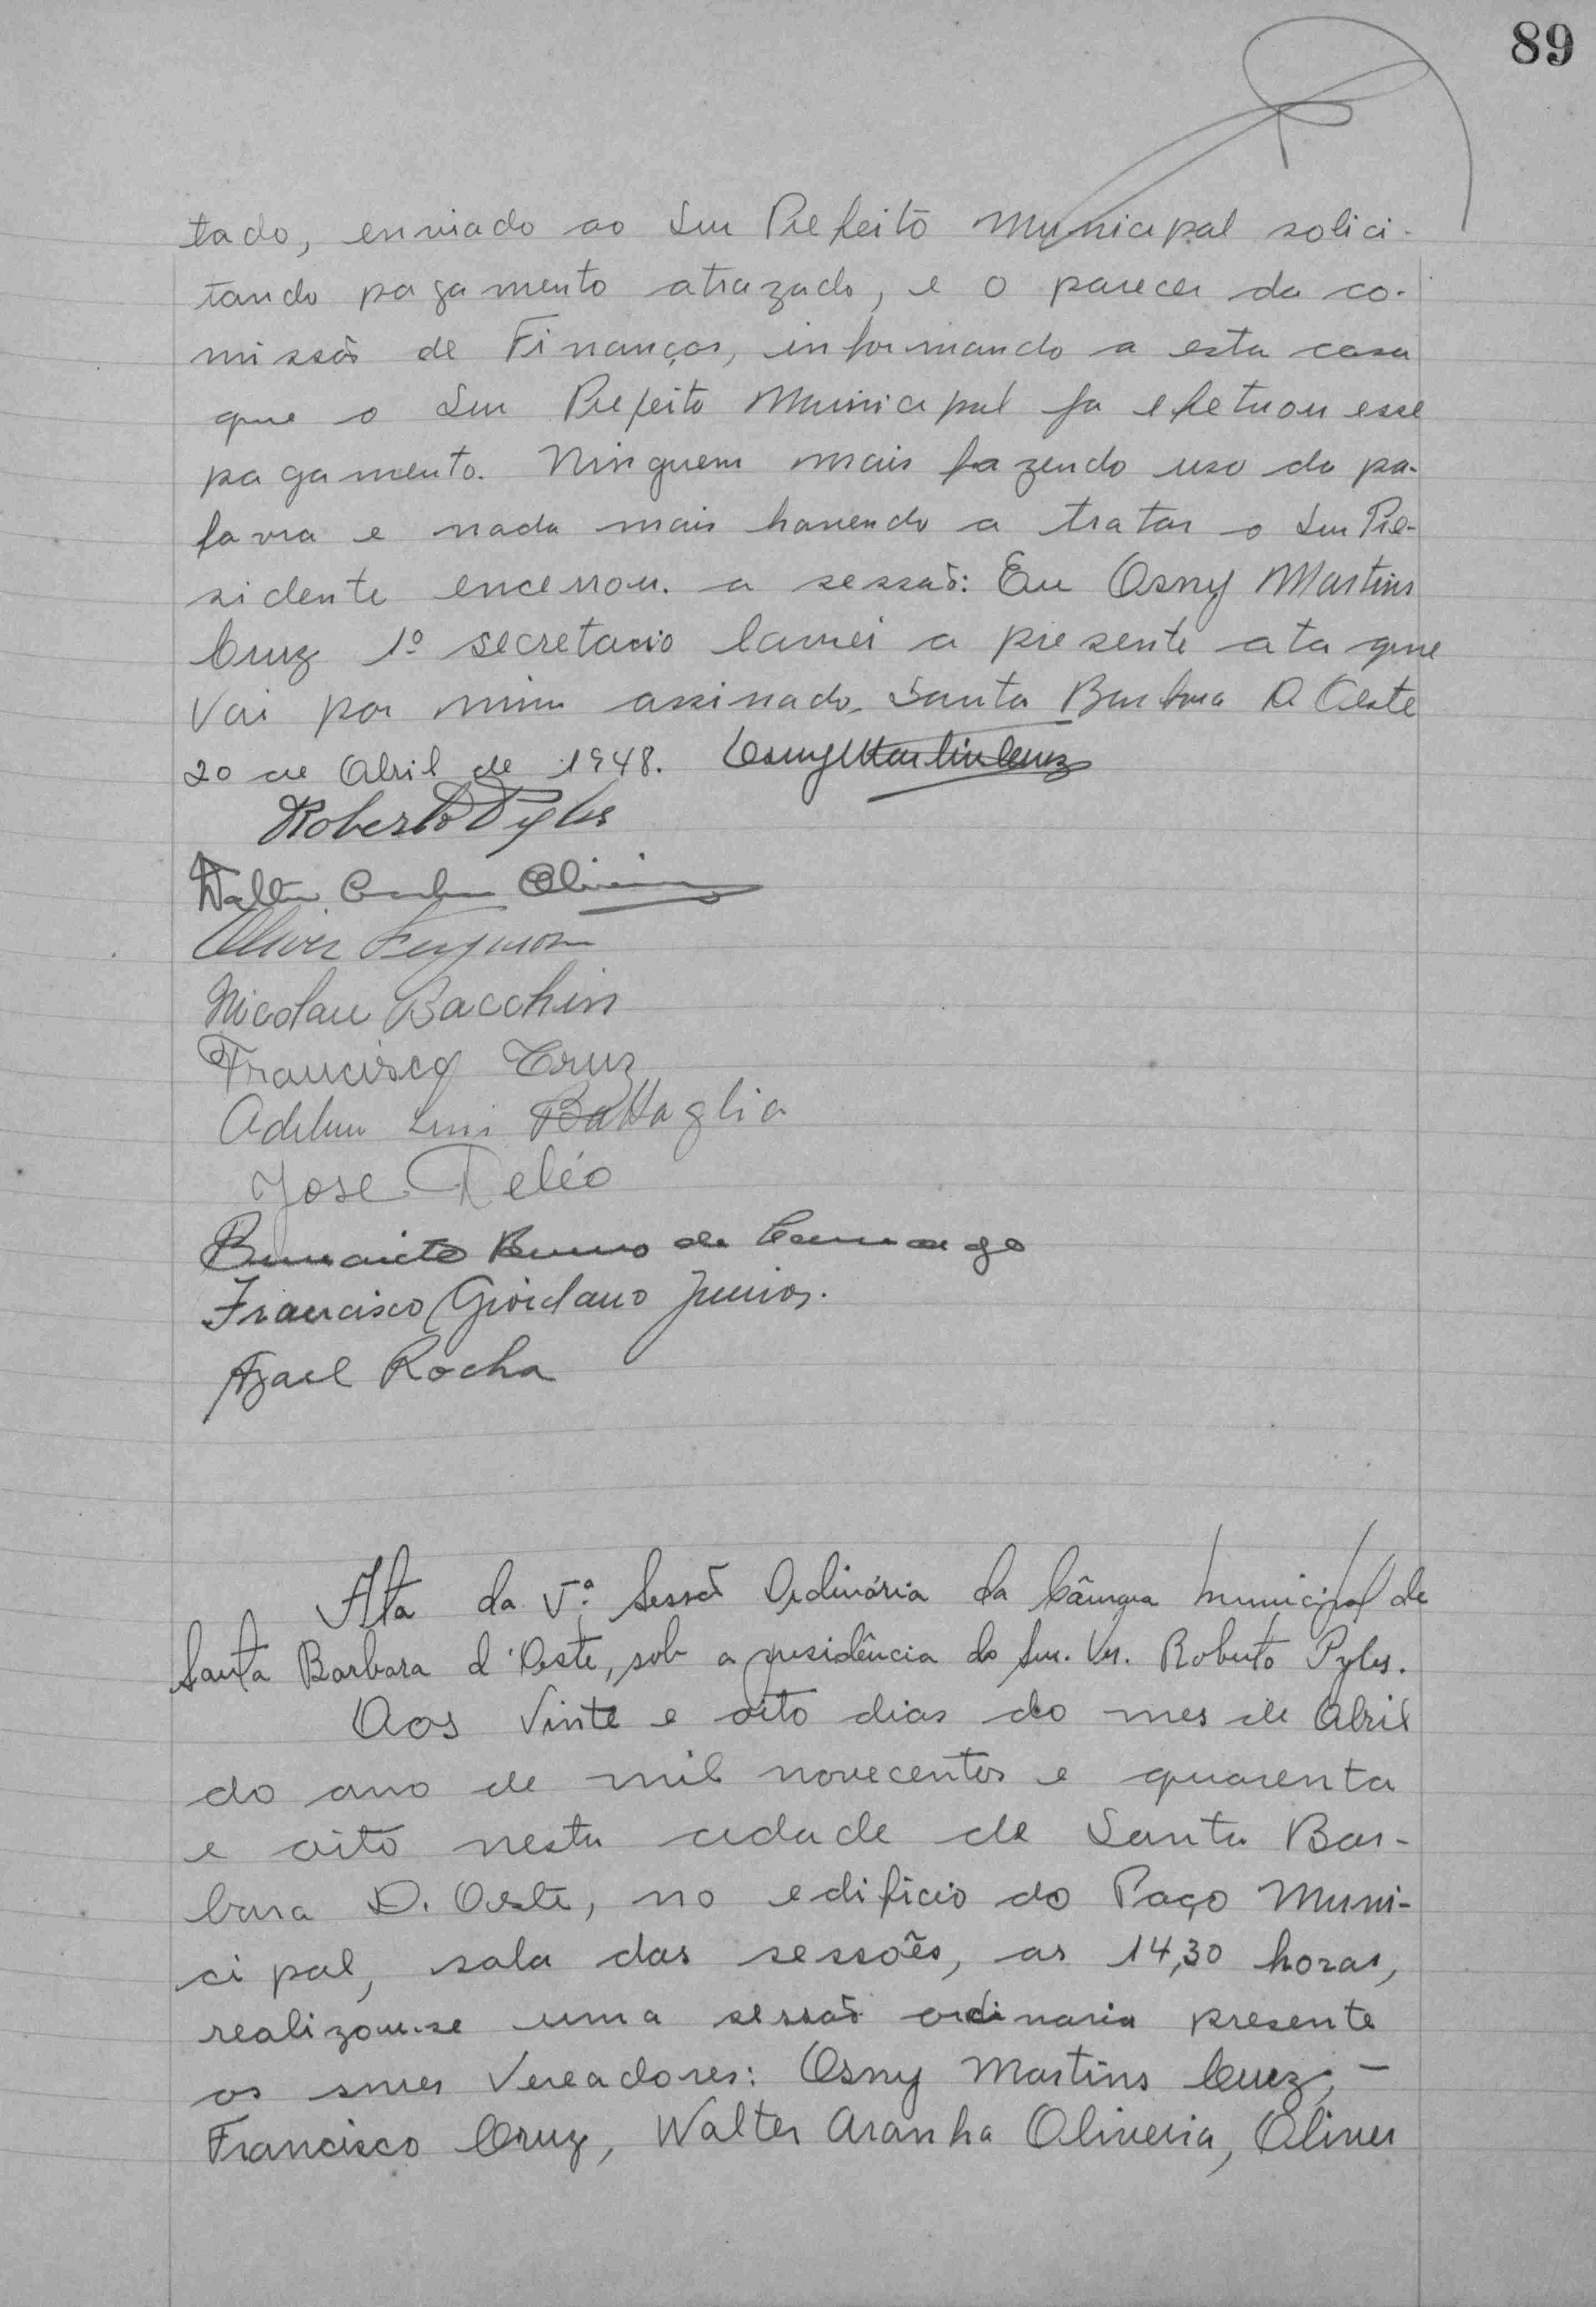 89
tado, enviado ao Snr Prefeito Municipal solici-
tando pagamento atrazado, e o parecer da co-
missão de Finanças, informando a esta casa
que o Snr Prefeito Municipal ja efetuou esse
pagamento. Ninguem mais fazendo uso da pa-
lavra e nada mais havendo a tratar o Snr Pre-
sidente encerrou. a sessão: Eu Osny Martins
Cruz 1º secretario lavrei a presente ata que
vai por mim assinado. Santa Barbara D Oeste
20 de Abril de 1948. Osny Martins Cruz
Roberto Pyles
Walter Oliveira
Oliver Ferguson
Nicolau Bacchin
Francisco Cruz
Luis Battaglia
Jose Deléo
Benedicto Bueno de Camargo
Francisco Giordano Junior.
Azael Rocha
Ata da 5ª Sessão Ordinária da Câmara Municipal de
Santa Barbara d'Oeste, sob a presidência do Snr. Ver. Roberto Pyles.
Aos Vinte e oito dias do mes de Abril
do ano de mil novecentos e quarenta
e oito nesta cidade de Santa Bar-
bara D. Oeste, no edificio do Paço Muni-
cipal, sala das sessões, as 14,30 horas,
realizou-se uma sessão ordinaria presente
os snres Vereadores: Osny Martins Cruz, -
Francisco Cruz, Walter Aranha Oliveira, Oliver